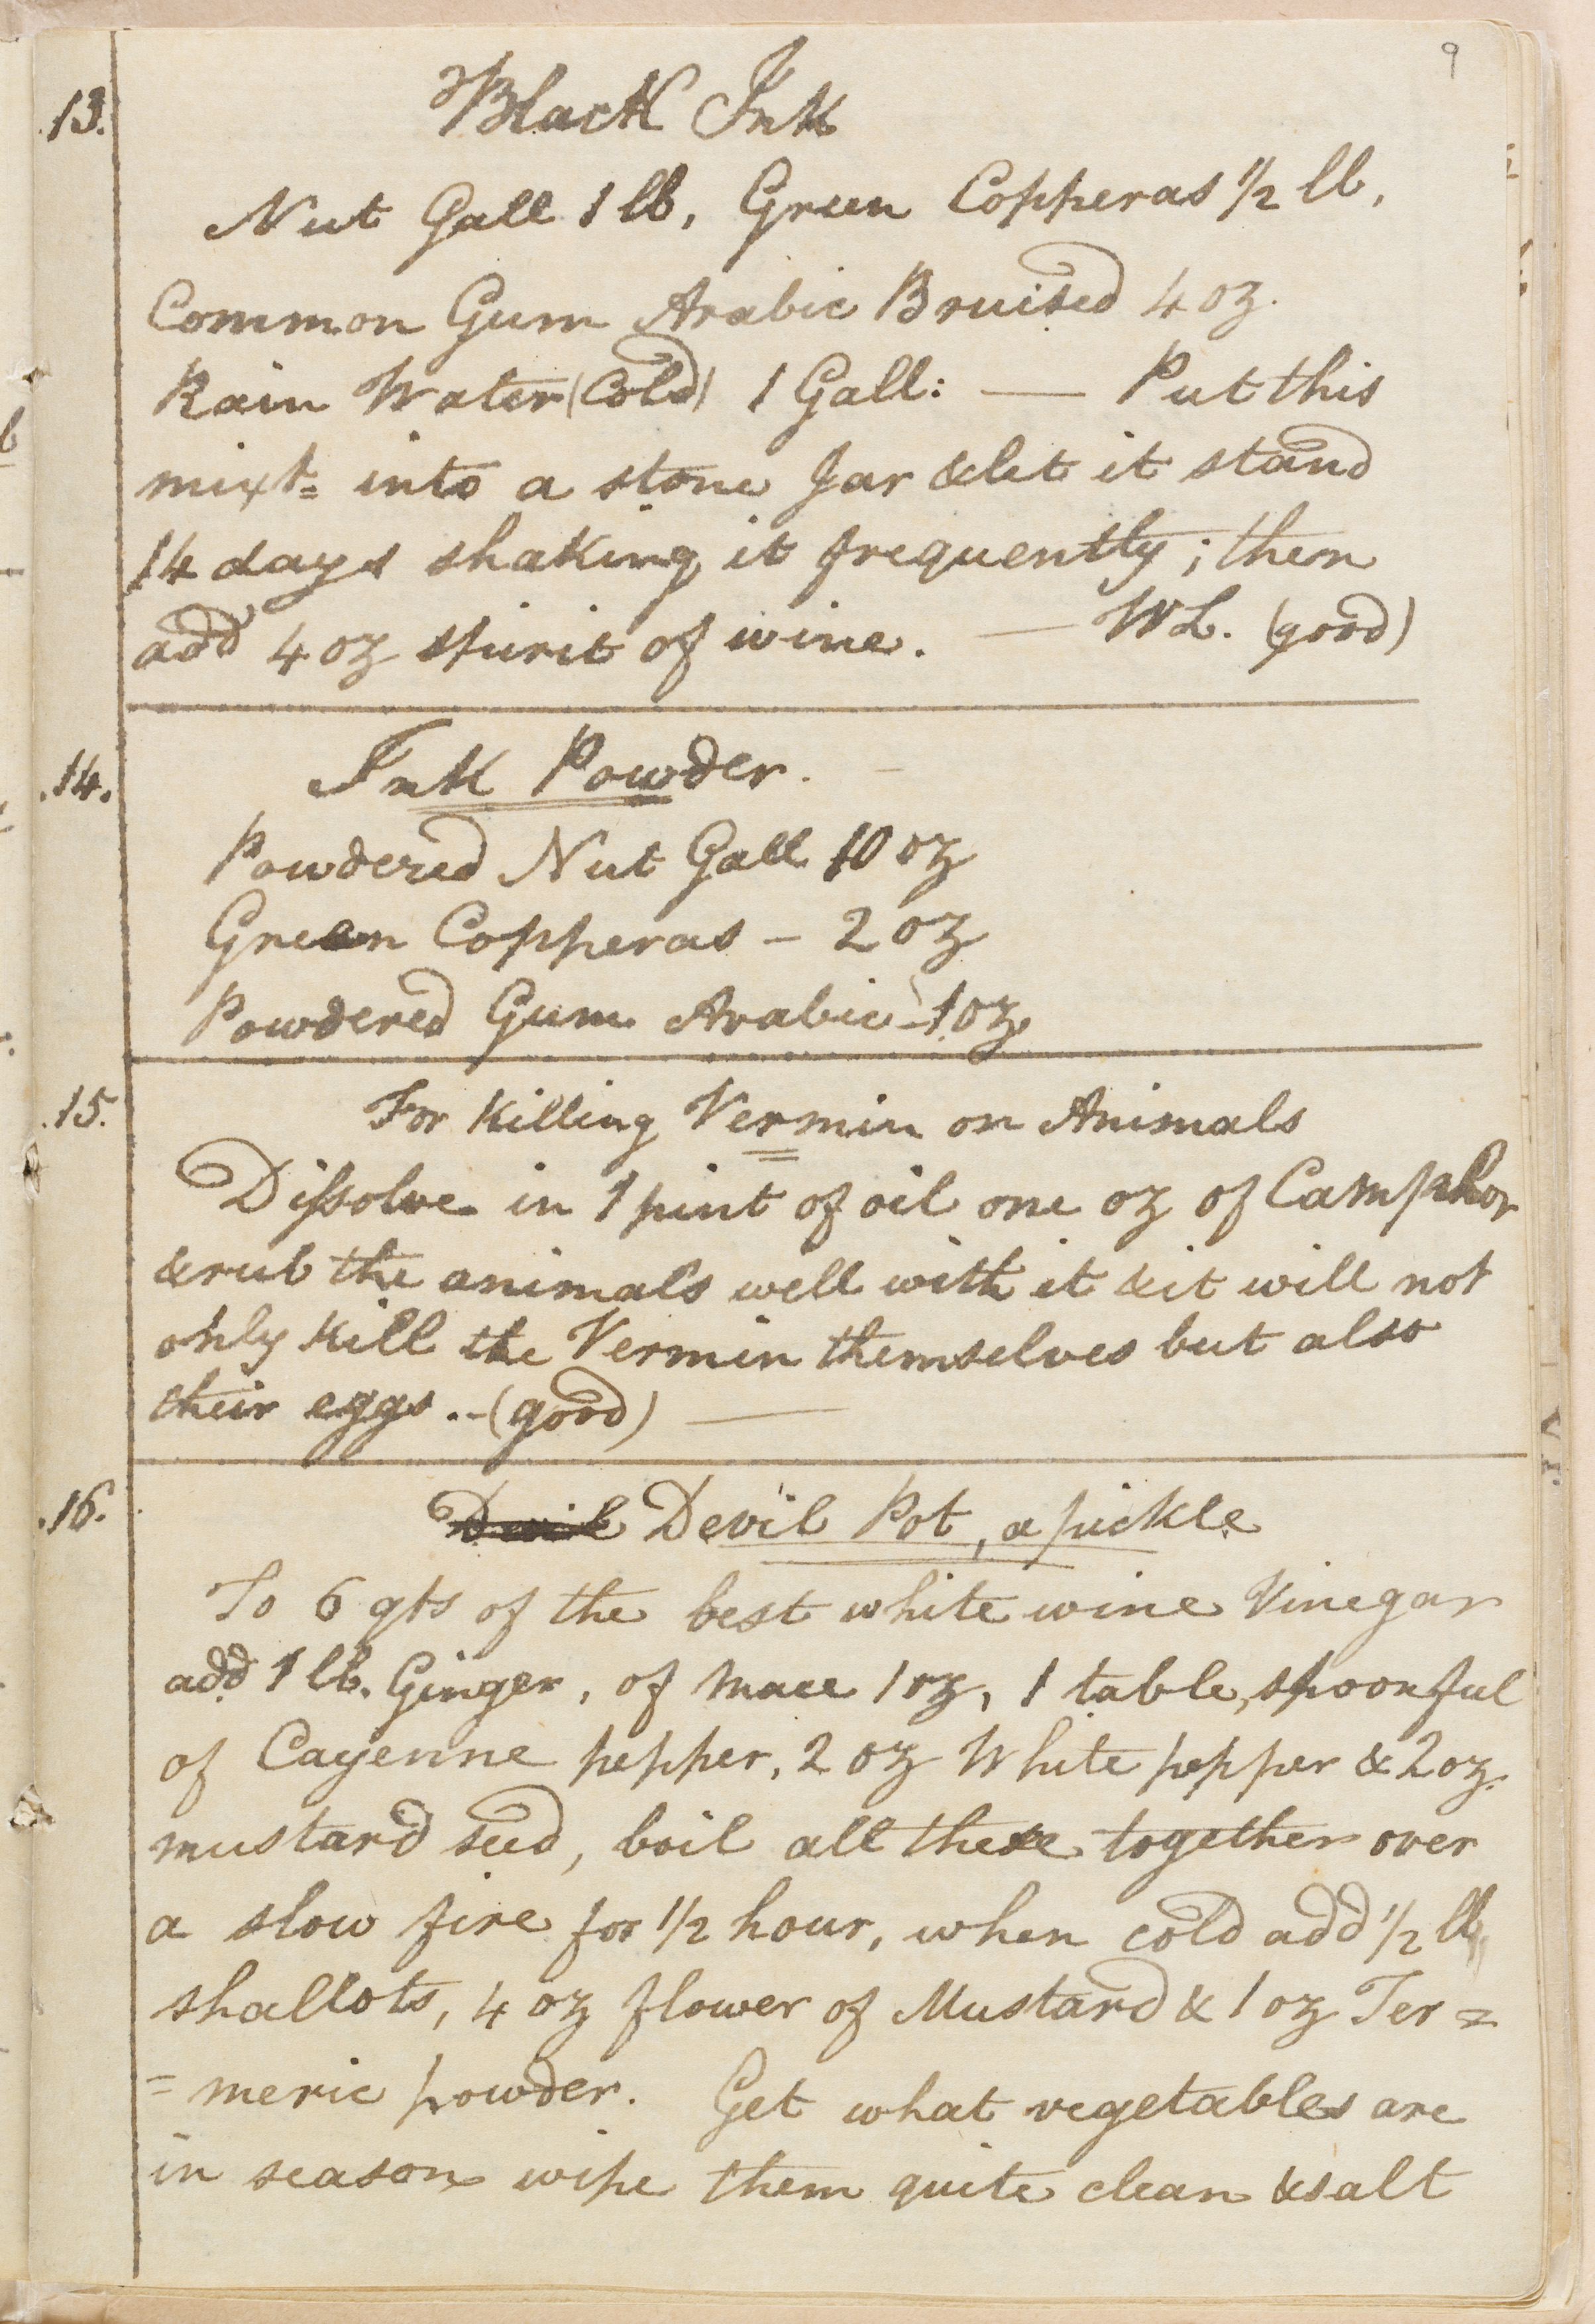 9
13. Black Ink
Nut Gall 1 lb, Green Copperas 1/2 lb,
Common Gum Arabic Bruised 4 oz.
Rain Water (Cold) 1 Gall: — Put this
mixt= into a stone Jar & let it stand
14 days shaking it frequently; then
add 4 oz spirit of wine. — WL. (good)
.14. Ink Powder.
Powdered Nut Gall 10 oz
Green Copperas - 2 oz
Powdered Gum Arabic - 1 oz
.15. For Killing Vermin on Animals
Difsolve in 1 pint of oil one oz of Camphor
& rub the animals well with it & it will not
only kill the Vermin themselves but also
their eggs. - (good) —
.16. Devil Devil Pot, a pickle
To 6 qts of the best white wine Vinegar
add 1 lb. Ginger, of Mace 1 oz, 1 table, spoonful
of Cayenne pepper, 2 oz White pepper & 2 oz.
mustard seed, boil all these together over
a slow fire for 1/2 hour, when cold add 1/2 lb
shallots, 4 oz flower of Mustard & 1 oz Ter=
=meric powder. Get what vegetables are
in season wipe them quite clean & salt